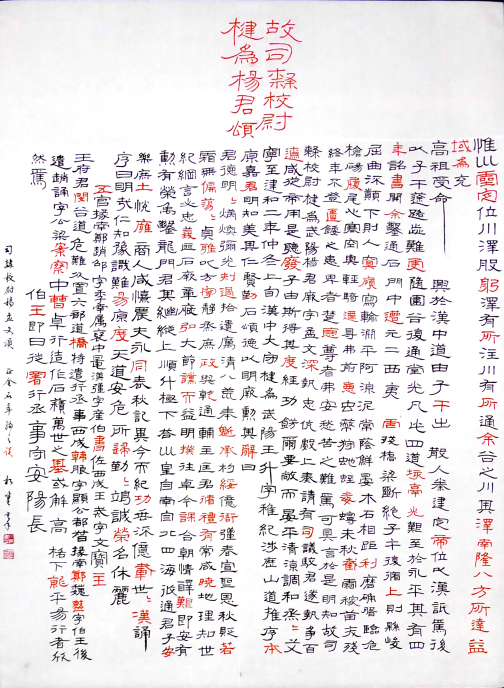 故司隸校尉
楗為楊君頌
惟巛靈定位川澤股躬澤有所注川有所通余谷之川其澤南隆八方所達益
域為充
高祖受命興於漢中道由子午出散入秦建定帝位以漢詆焉後
以子午塗路歰難更隨圍谷復通堂光凡此四道垓鬲尤難至於永平其有四
年詔書開余鑿通石門中遭元二西夷虐殘橋梁斷絕子午復循上則縣峻
屈曲流顛下則入冥廎寫輸淵平阿淖泥常蔭鮮晏木石相距利磨确磐臨危
槍碭履尾心寒空輿輕騎遰㝵弗前惡虫蔽狩虵蛭毒蟃未秋截霜稼苗夭殘
終年不登匱餧之患卑者楚惡尊者弗安愁苦之難焉可具言於是明知故司
隸校尉楗為武陽楊君厥字孟文深執忠伉數上奏請有司議駮君遂執爭百
遼咸從帝用是聽廢子由斯得其度經功飭爾要敝而晏平清涼調和烝烝艾
寧至建和二年仲冬上旬漢中大守楗為武陽王升字稚紀涉歷山道推序本
原嘉君明知美其仁賢勒石頌德以明厥勳其辭曰
君德明明炳煥彌光刺過拾遺厲清八荒奉魁承杓綏億衙彊春宣聖恩秋貶若
霜無偏蕩蕩貞雅以方寧靜烝庶政與乾通輔主匡君循禮有常咸曉地理知世
紀綱言必忠義匪石厥章恢弘大節讜而益明揆往卓今謀合朝情醳艱即安有
勳有榮禹鑿龍門君其繼縱上順斗極下答巛皇自南自北四海攸通君子安
樂庶士悅雍商人咸憘農夫永同春秋記異今而紀功垂流億載世世嘆誦
序曰明哉仁知豫識難易原度天道安危所歸勤勤竭誠榮名休麗
五官掾南鄭趙邵字季南屬褒中晁漢彊字產伯書佐西成王戒字文寶主
王府君閔谷道危難分置六部道橋特遣行丞事西成韓服字顯公都督掾南鄭魏整字伯玉後
遣趙誦字公梁案察中曹卓行造作石積萬世之基或解高格下就平易行者欣
然焉伯玉即日徙署行丞事守安陽長
司隸校尉楊孟文頌